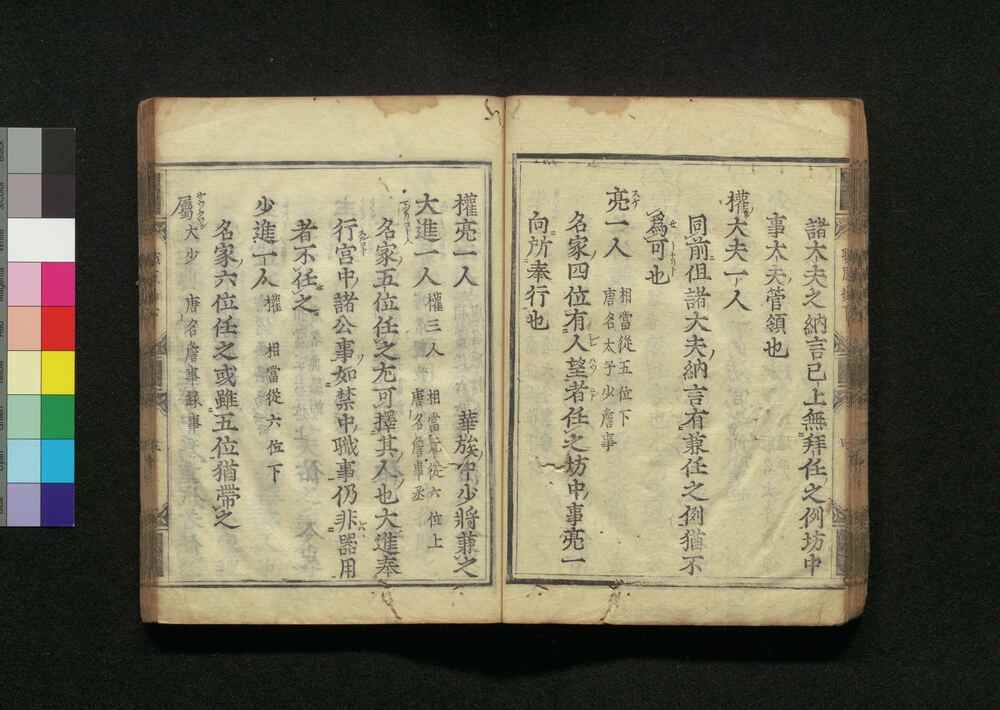 諸大夫之納言已上無拜任之例坊中
事大夫管領也
權大夫一人
同前但諸大夫納言有兼任之例猶不
爲可也
亮一人 相當從五位下
唐名太子少詹事
名家四位有人望者任之坊中事亮一
向所奉行也
權亮一人 華族中少將兼之
大進一人 權三人 相當從六位上
唐名詹事丞
名家五位任之尤可擇其人也大進奉
行宮中諸公事如禁中職事仍非器用
者不任之
少進一人 權 相當從六位下
名家六位任之或雖五位猶帶之
屬 大少 唐名詹事錄事